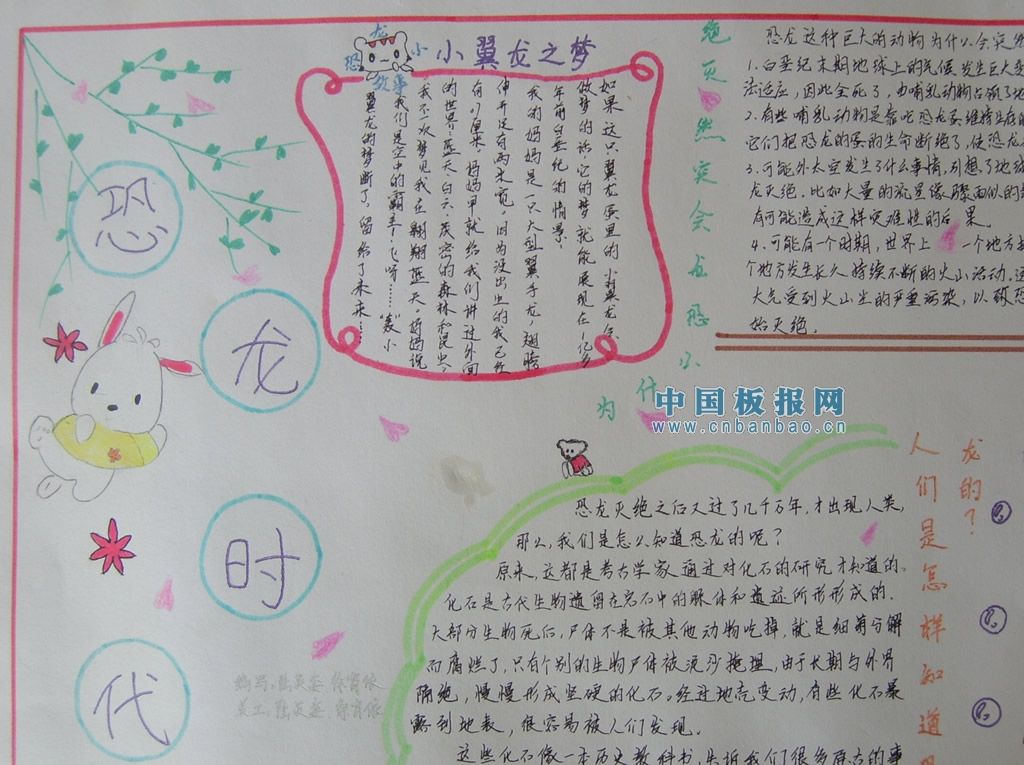 恐龙小故事
小翼龙之梦
如果这只翼龙蛋里的小翼龙会
做梦的话，它的梦就能展现在一亿多
年前白垩纪的情景。
我的妈妈是一只大型翼手龙，翅膀
伸开足有两米宽。因为没出生的我已经
有八厘米，妈妈早就给我们讲过外面
的世界：蓝天、白云、茂密的森林和昆虫。
我不一次梦见我在翱翔蓝天。妈妈说
我们是空中的霸手，飞呀……“轰”小
翼龙的梦断了，留给了未来……
恐
龙
时
代
为什小恐龙会突然灭绝
恐龙这种巨大的动物为什么会突然
1.白垩纪末期地球上的气候发生巨大变
法适应，因此全死了，由哺乳动物占领了地
2.有些哺乳动物是靠吃恐龙蛋维持生存的
它们把恐龙的蛋的生命断绝了，使恐龙
3.可能外太空发生了什么事情，引想了地球
龙灭绝。比如大量的流星像骤雨似的
有可能造成这样突难性的后果。
4.可能有一个时期，世界上一个地方
个地方发生长久持续不断的火山活动。这
大气受到火山尘的严重污染，以致恐
始灭绝。
中国板报网
www.cnbanbao.cn
人们是怎样知道恐
龙的？
恐龙灭绝之后又过了几千万年，才出现人类，
那么，我们是怎么知道恐龙的呢？
原来，这都是考古学家通过对化石的研究才知道的。
化石是古代生物遗留在岩石中的躯体和遗迹所形形成的。
大部分生物死后，尸体不是被其他动物吃掉，就是细菌分解
而腐烂了，只有个别的生物尸体被流沙掩埋，由于长期与外界
隔绝，慢慢形成坚硬的化石。经过地壳变动，有些化石暴
露到地表，很容易被人们发现。
这些化石像一本历史教科书，告诉我们很多原古的事
编写：
美工：